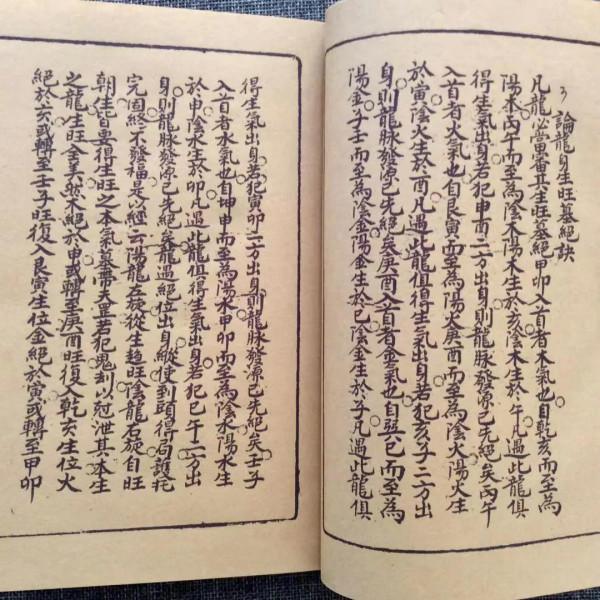 3 論龍身生旺墓絕訣
凡龍必當審其生旺墓絕甲卯入首者木氣也自乾亥而至為
陽木丙午而至為陰木陽木生於亥陰木生於午凡遇此龍俱
得生氣出身若犯申酉二方出身則龍脉發源已先絕矣丙午
入首者火氣也自艮寅而至為陽火庚酉而至為陰火陽火生
於寅陰火生於酉凡遇此龍俱得生氣出身若犯亥子二方出
身則龍脉發源已先絕矣庚酉入首者金氣也自巽巳而至為
陽金子壬而至為陰金陽金生於巳陰金生於子凡遇此龍俱
得生氣出身若犯寅卯二方出身則龍脉發源已先絕矣壬子
入首者水氣也自坤申而至為陽水甲卯而至為陰水陽水生
於申陰水生於卯凡遇此龍俱得生氣出身若犯巳午二方出
身則龍脉發源已先絕矣龍遇絕位出身縱使到頭得局護托
完固終不發福是以經云陽龍左旋從生趨旺陰龍右旋自旺
朝生皆要得生旺之本氣墓帶天罡若犯鬼刦以冦泄其本生
之龍生旺全美然木絕於申或轉至庚酉旺復入乾亥生位火
絕於亥或轉至壬子旺復入艮寅生位金絕於寅或轉至甲卯